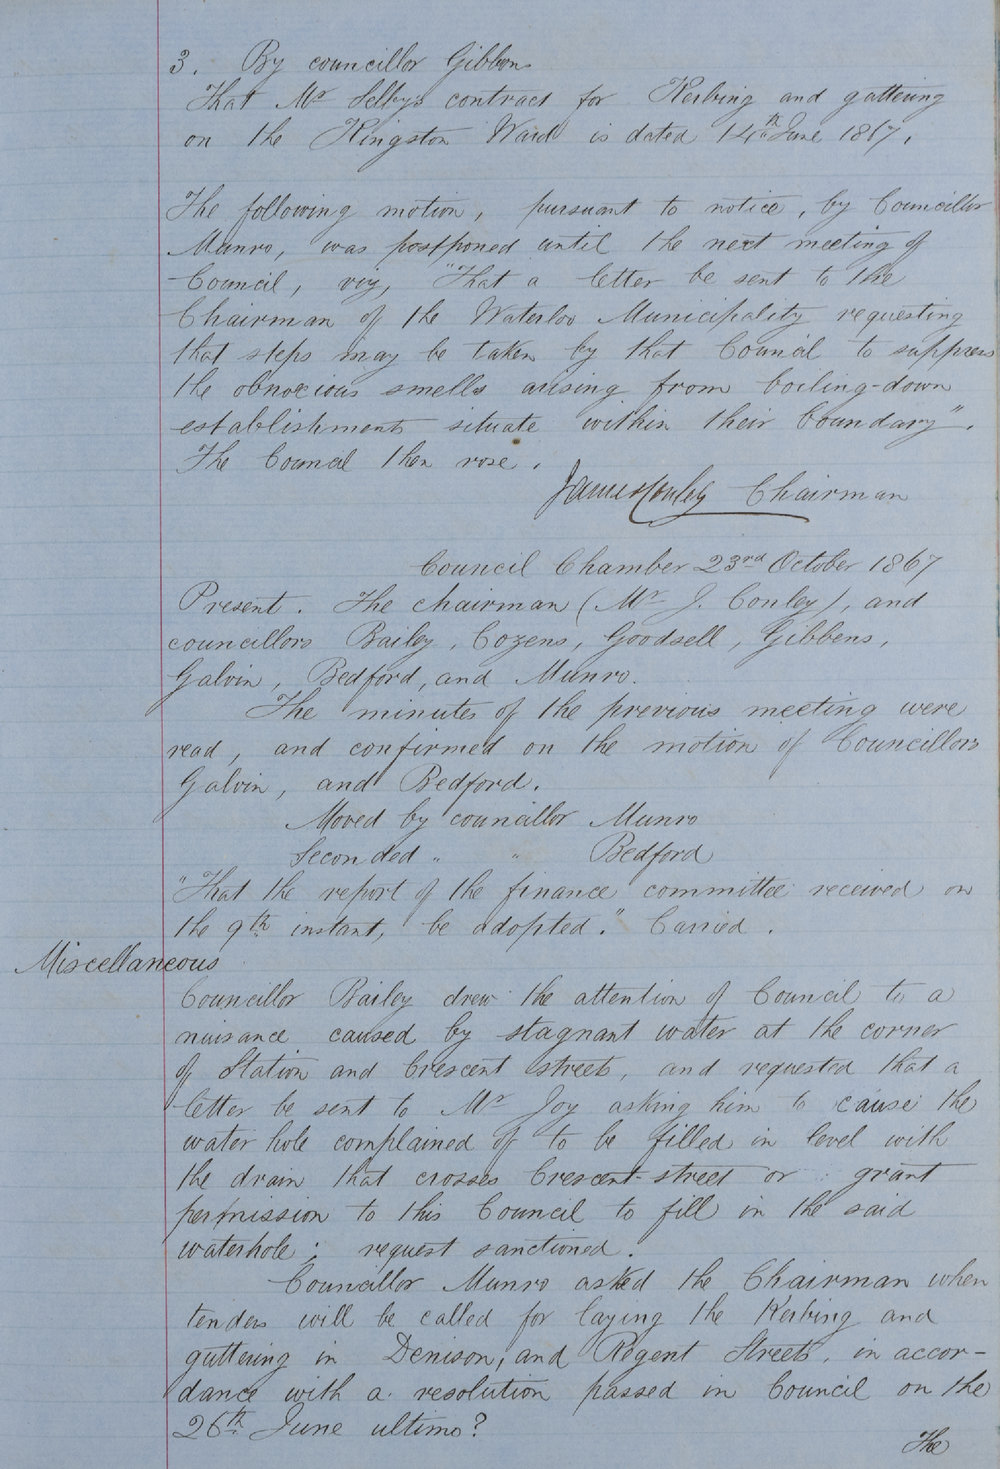 3. By councillor Gibbens
That Mr Selby's contract for Kerbing and guttering
on the Kingston Ward is dated 14th June 1867.
The following motion, pursuant to notice, by Councillor
Munro, was postponed until the next meeting of
Council, viz, "That a letter be sent to the
Chairman of the Waterloo Municipality requesting
that steps may be taken by that Council to suppress
the obnoxious smells arising from boiling-down
establishments situate within their boundary".
The Council then rose.
James Conley Chairman
Council Chamber 23rd October 1867
Present. The chairman (Mr J. Conley), and
councillors Bailey, Cozens, Goodsell, Gibbens,
Galvin, Bedford, and Munro.
The minutes of the previous meeting were
read, and confirmed on the motion of Councillors
Galvin, and Bedford.
Moved by councillor Munro
Seconded " " Bedford
"That the report of the finance committee received on
the 9th instant, be adopted." Carried.
Miscellaneous
Councillor Bailey drew the attention of Council to a
nuisance caused by stagnant water at the corner
of Station and Crescent streets, and requested that a
letter be sent to Mr Joy asking him to cause the
water hole complained of to be filled in level with
the drain that crosses Crescent-street or grant
permission to this Council to fill in the said
waterhole; request sanctioned.
Councillor Munro asked the Chairman when
tenders will be called for laying the Kerbing and
guttering in Denison, and Regent Streets, in accor-
dance with a resolution passed in Council on the
26th June ultimo?
The